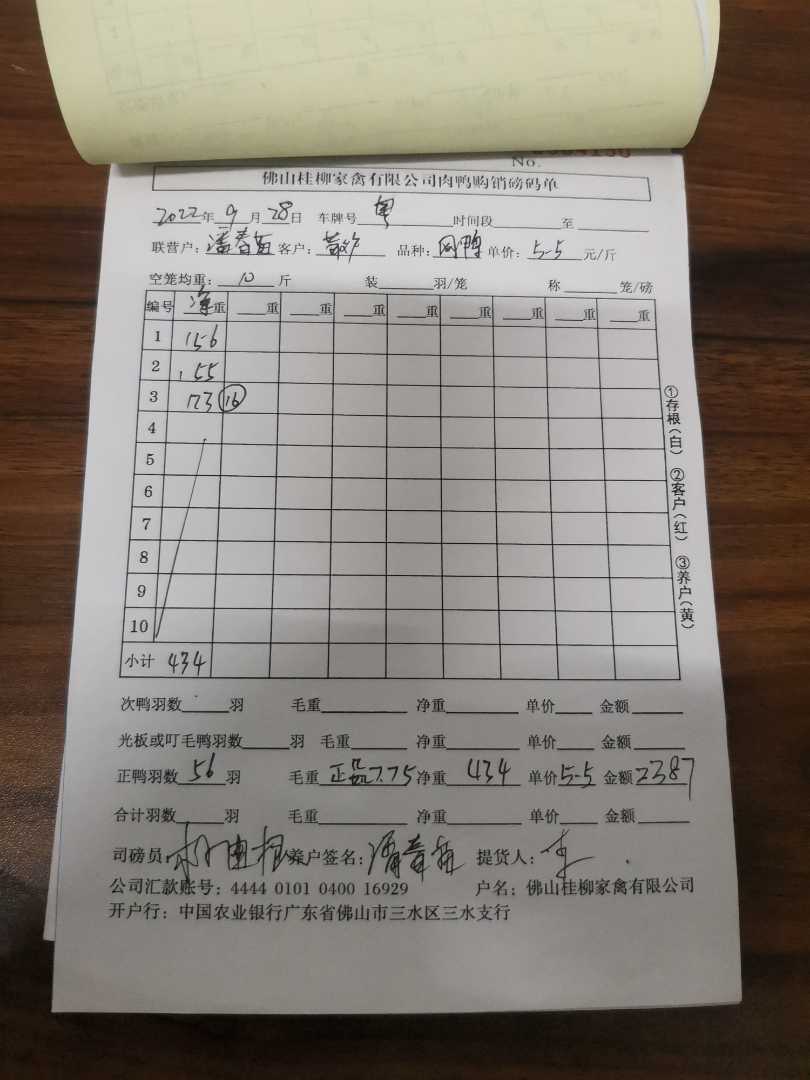 No.
佛山桂柳家禽有限公司肉鸭购销磅码单
2022年9月28日 车牌号 粤 时间段 至
联营户： 客户： 品种： 单价：5-5元/斤
空笼均重：10斤 装 羽/笼 称 笼/磅
编号 净重 重 重 重 重 重 重 重 重
1 156
2 155
3 173 16
4
5
6
7
8
9
10
小计 434
①存根(白) ②客户(红) ③养户(黄)
次鸭羽数 羽 毛重 净重 单价 金额
光板或叮毛鸭羽数 羽 毛重 净重 单价 金额
正鸭羽数 56 羽 毛重 正品7.75 净重 434 单价 5-5 金额 2387
合计羽数 羽 毛重 净重 单价 金额
司磅员： 养户签名： 提货人：
公司汇款账号：4444 0101 0400 16929 户名：佛山桂柳家禽有限公司
开户行：中国农业银行广东省佛山市三水区三水支行